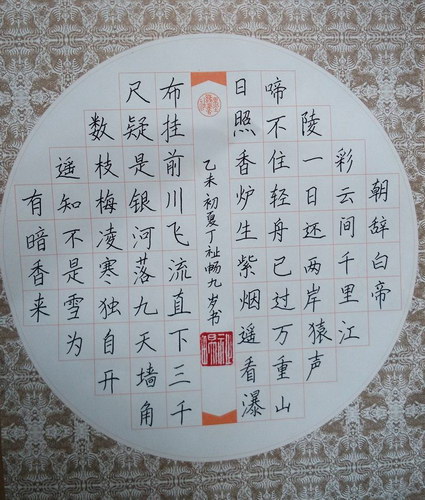 朝辞白帝
彩云间千里江
陵一日还两岸猿声
啼不住轻舟已过万重山
日照香炉生紫烟遥看瀑
布挂前川飞流直下三千
尺疑是银河落九天墙角
数枝梅凌寒独自开
遥知不是雪为
有暗香来
乙未初夏丁祉畅九岁书